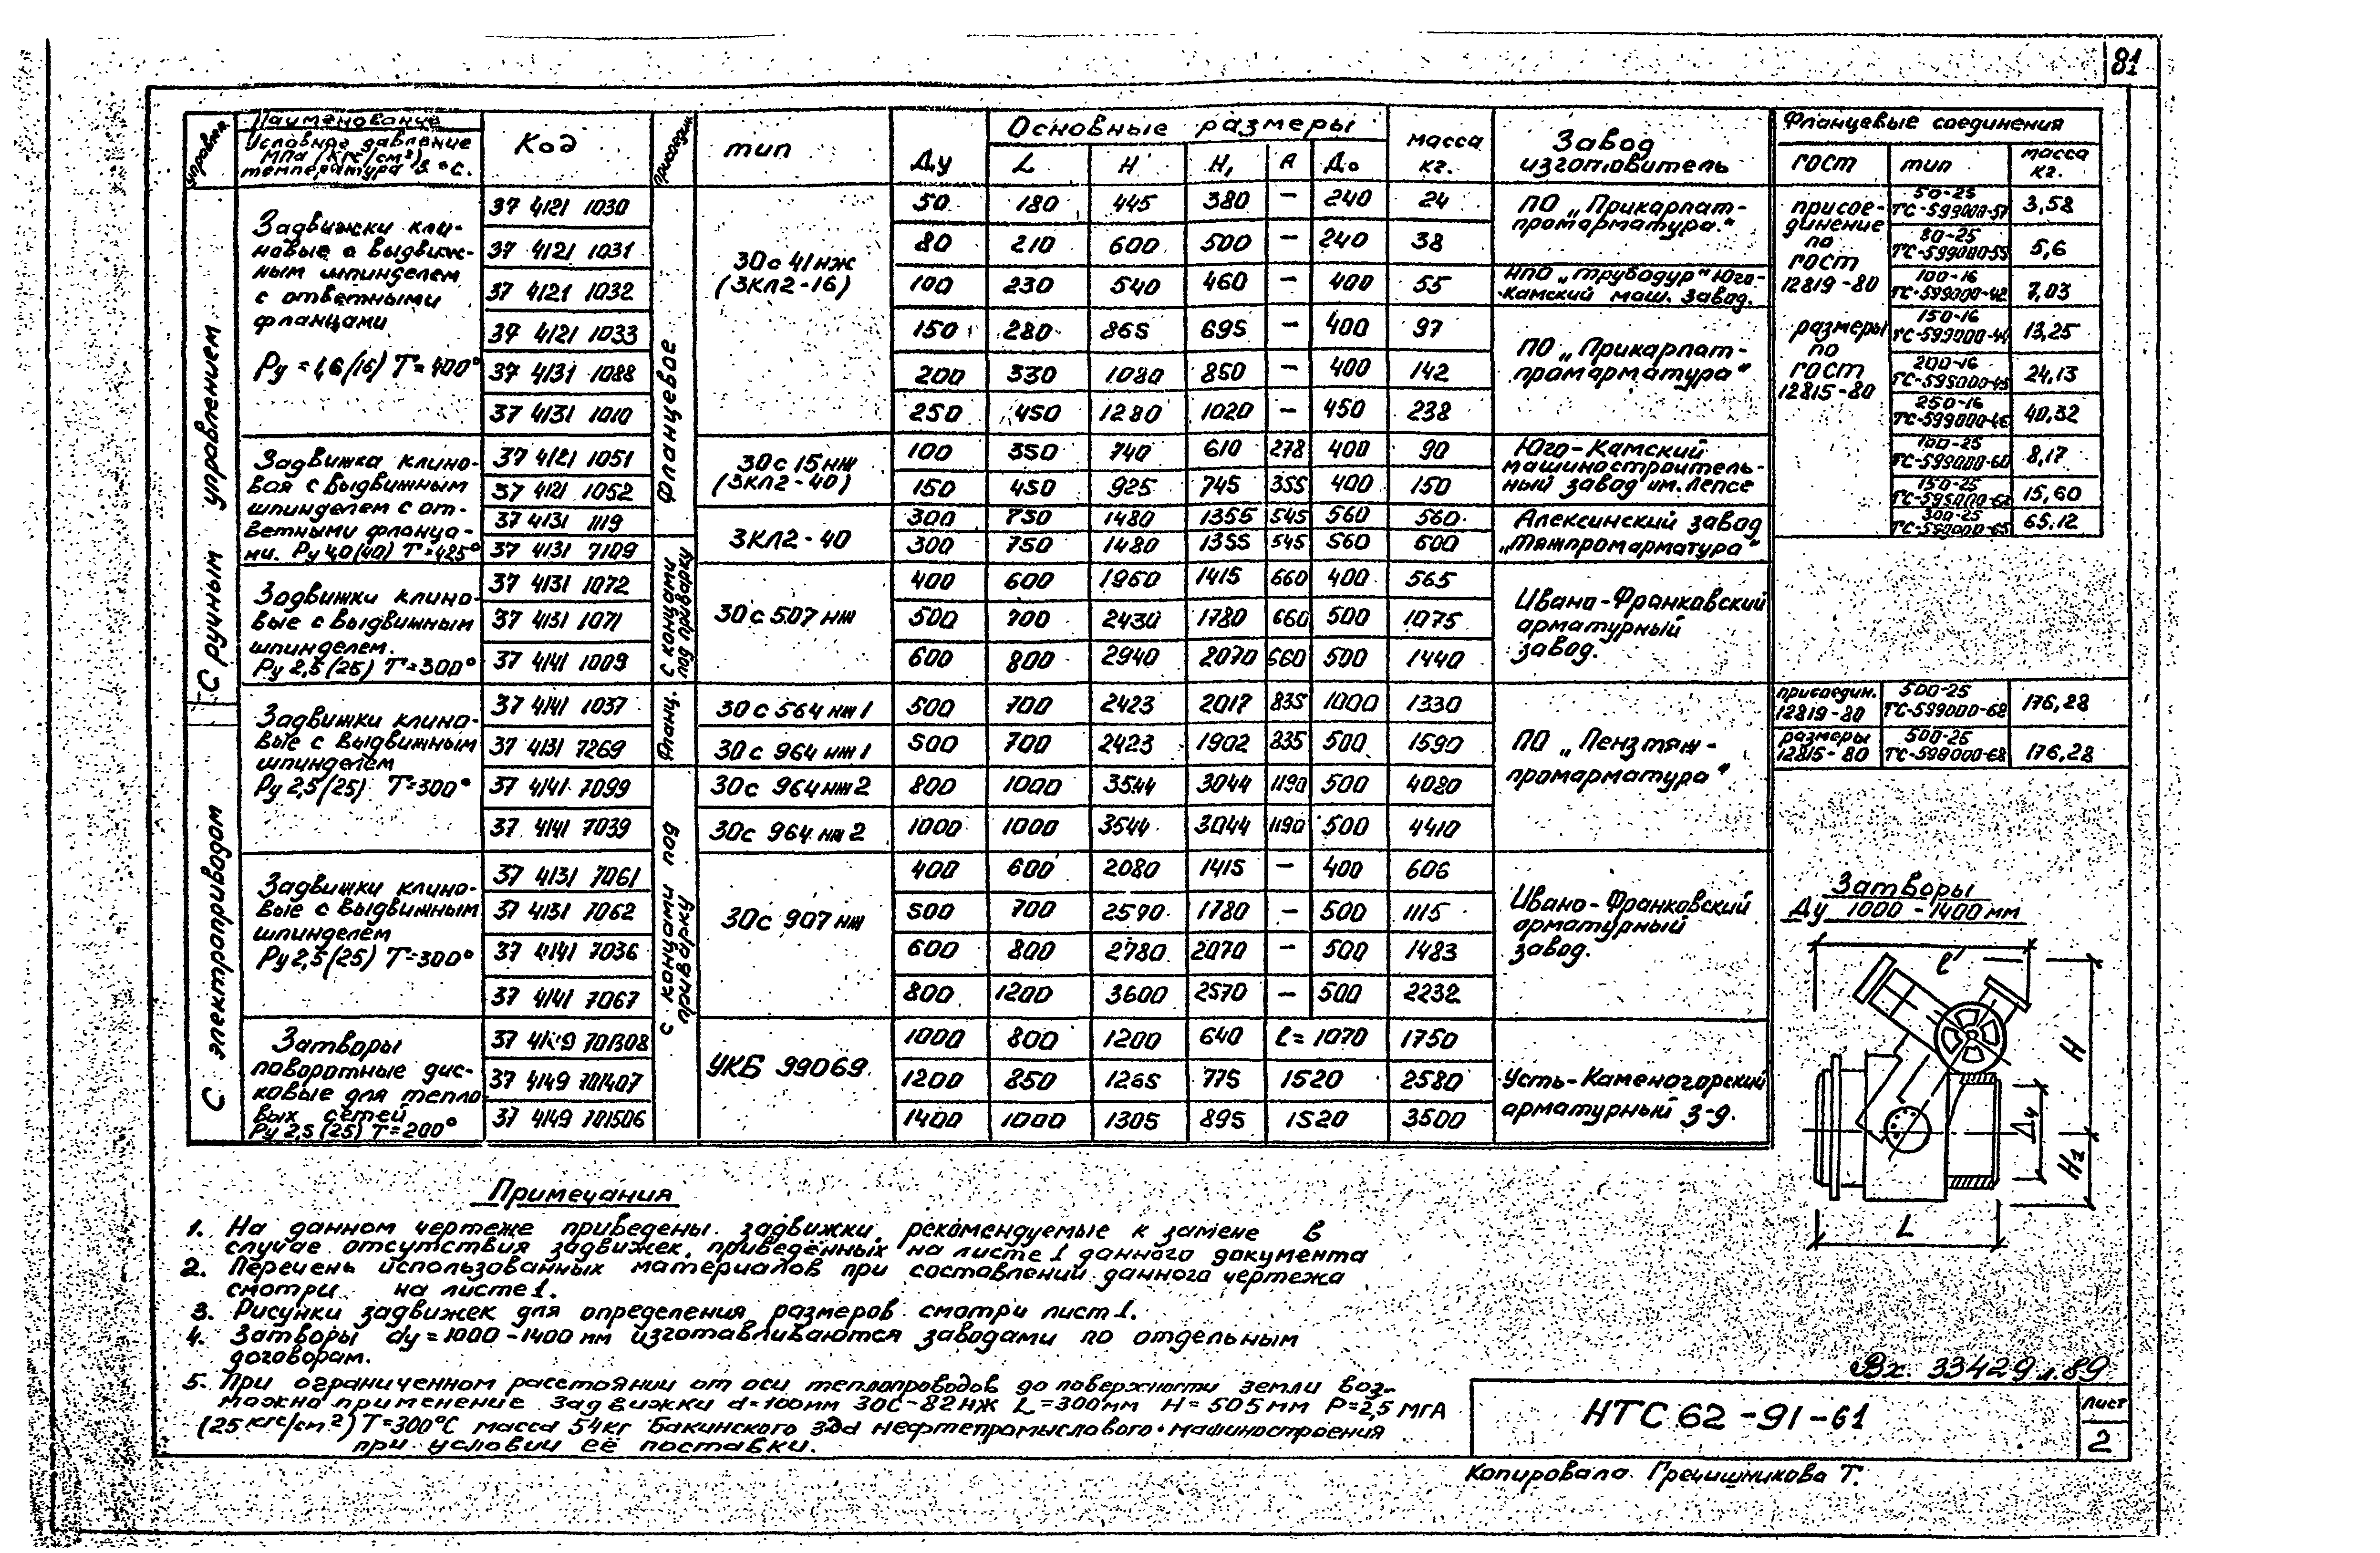 81
управлен.
Наименование
Условное давление
МПа (кгс/см²)
температура в °С.
Код
присоедин.
тип
Ду
Основные размеры
L H H₁ А До
масса
кг.
Завод
изготовитель
Фланцевые соединения
гост тип масса
кг.
С ручным управлением
С электроприводом
Фланцевое
с концами
под приварку
Фланц.
с концами под
приварку
Задвижки кли-
новые с выдвиж-
ным шпинделем
с ответными
фланцами
Ру = 1,6 (16) Т = 400°
30с 41нж
(ЗКЛ2-16)
37 4121 1030 50 180 445 380 – 240 24
37 4121 1031 80 210 600 500 – 240 38
37 4121 1032 100 230 540 460 – 400 55
37 4121 1033 150 280 865 695 – 400 97
37 4131 1088 200 330 1080 850 – 400 142
37 4131 1010 250 450 1280 1020 – 450 238
ПО „Прикарпат-
промарматура."
НПО „трубодур" Юго-
Камский маш. завод.
ПО „Прикарпат-
промарматура"
присое-
динение
по
гост
12819-80
размеры
по
гост
12815-80
50-25
ТС-599000-57 3,58
80-25
ТС-599000-55 5,6
100-16
ТС-599000-42 7,03
150-16
ТС-599000-44 13,25
200-16
ТС-599000-45 24,13
250-16
ТС-599000-46 40,32
100-25
ТС-599000-60 8,17
150-25
ТС-599000-62 15,60
300-25
ТС-599000-65 65,12
Задвижка клино-
вая с выдвижным
шпинделем с от-
ветными фланца-
ми. Ру 4,0 (40) Т=425°
30с 15нж
(ЗКЛ2-40)
37 4121 1051 100 350 740 610 278 400 90
37 4121 1052 150 450 925 745 355 400 150
Юго-Камский
машинострoитель-
ный завод им. Лепсе
ЗКЛ2-40
37 4131 1119 300 750 1480 1355 545 560 560
37 4131 7109 300 750 1480 1355 545 560 600
Алексинский завод
„Тяжпромарматура"
Задвижки клино-
вые с выдвижным
шпинделем.
Ру 2,5 (25) Т=300°
30с 507 нж
37 4131 1072 400 600 1960 1415 660 400 565
37 4131 1071 500 700 2430 1780 660 500 1075
37 4141 1009 600 800 2940 2070 660 500 1440
Ивано-Франковский
арматурный
завод.
Задвижки клино-
вые с выдвижным
шпинделем
Ру 2,5 (25) Т=300°
37 4141 1037 30 с 564 нж 1 500 700 2423 2017 835 1000 1330
37 4131 7269 30с 964 нж 1 500 700 2423 1902 835 500 1590
37 4141 7099 30с 964нж 2 800 1000 3544 3044 1190 500 4080
37 4141 7039 30с 964 нж 2 1000 1000 3544 3044 1190 500 4410
ПО „Пензтяж-
промарматура"
присоедин.
12819-80 500-25
ТС-599000-68 176,28
размеры
12815-80 500-25
ТС-599000-68 176,28
Задвижки клино-
вые с выдвижным
шпинделем
Ру 2,5 (25) Т=300°
30с 907 нж
37 4131 7061 400 600 2080 1415 – 400 606
37 4131 7062 500 700 2590 1780 – 500 1115
37 4141 7036 600 800 2780 2070 – 500 1483
37 4141 7067 800 1200 3600 2570 – 500 2232
Ивано-Франковский
арматурный
завод.
Затворы
поворотные дис-
ковые для тепло
вых сетей
Ру 2,5 (25) Т=200°
УКБ 99069
37 4149 701308 1000 800 1200 640 ℓ= 1070 1750
37 4149 701407 1200 850 1265 775 1520 2580
37 4149 701506 1400 1000 1305 895 1520 3500
Усть-Каменогорский
арматурный з-д.
Затворы
Ду 1000-1400 мм
ℓ
H
Ду
H1
L
Примечания
1. На данном чертеже приведены задвижки, рекомендуемые к замене в
случае отсутствия задвижек, приведенных на листе 1 данного документа
2. Перечень использованных материалов при составлении данного чертежа
смотри на листе 1.
3. Рисунки задвижек для определения размеров смотри лист 1.
4. Затворы dу = 1000-1400 мм изготавливаются заводами по отдельным
договорам.
5. При ограниченном расстоянии от оси теплопроводов до поверхности земли воз-
можно применение задвижки d=100мм 30с-82нж L=300мм H=505мм Р=2,5 МГА
(25 кгс/см²) Т=300°С масса 54кг Бакинского з-да нефтепромыслового машиностроения
при условии её поставки.
Вх. 33429 л. 89
НТС 62-91-61
Лист
2
Копировала Гречишникова Т.